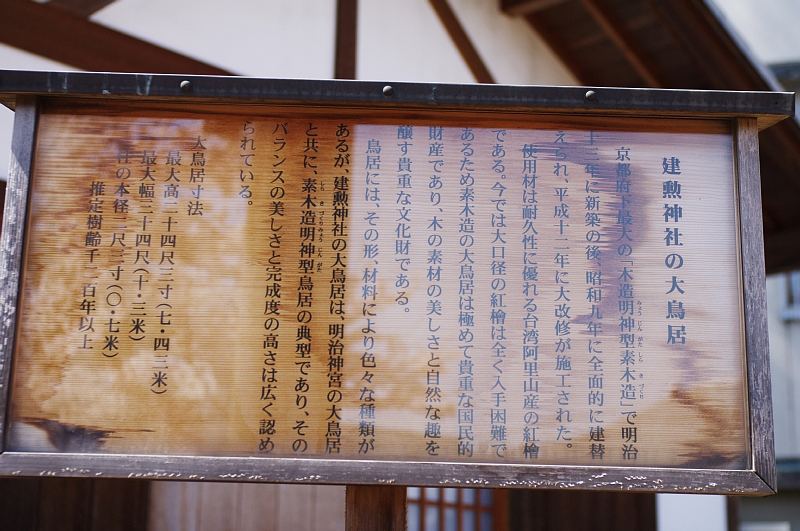 建勲神社の大鳥居
京都府下最大の「木造明神型素木造」で明治
十三年に新築の後、昭和九年に全面的に建替
えられ、平成十二年に大改修が施工された。
使用材は耐久性に優れる台湾阿里山産の紅檜
である。今では大口径の紅檜は全く入手困難で
あるため素木造の大鳥居は極めて貴重な国民的
財産であり、木の素材の美しさと自然な趣を
醸す貴重な文化財である。
鳥居には、その形、材料により色々な種類が
あるが、建勲神社の大鳥居は、明治神宮の大鳥居
と共に、素木造明神型鳥居の典型であり、その
バランスの美しさと完成度の高さは広く認め
られている。
大鳥居寸法
最大高二十四尺三寸(七・四三米)
最大幅三十四尺(十・三米)
柱の本径二尺三寸(〇・七米)
推定樹齢千二百年以上